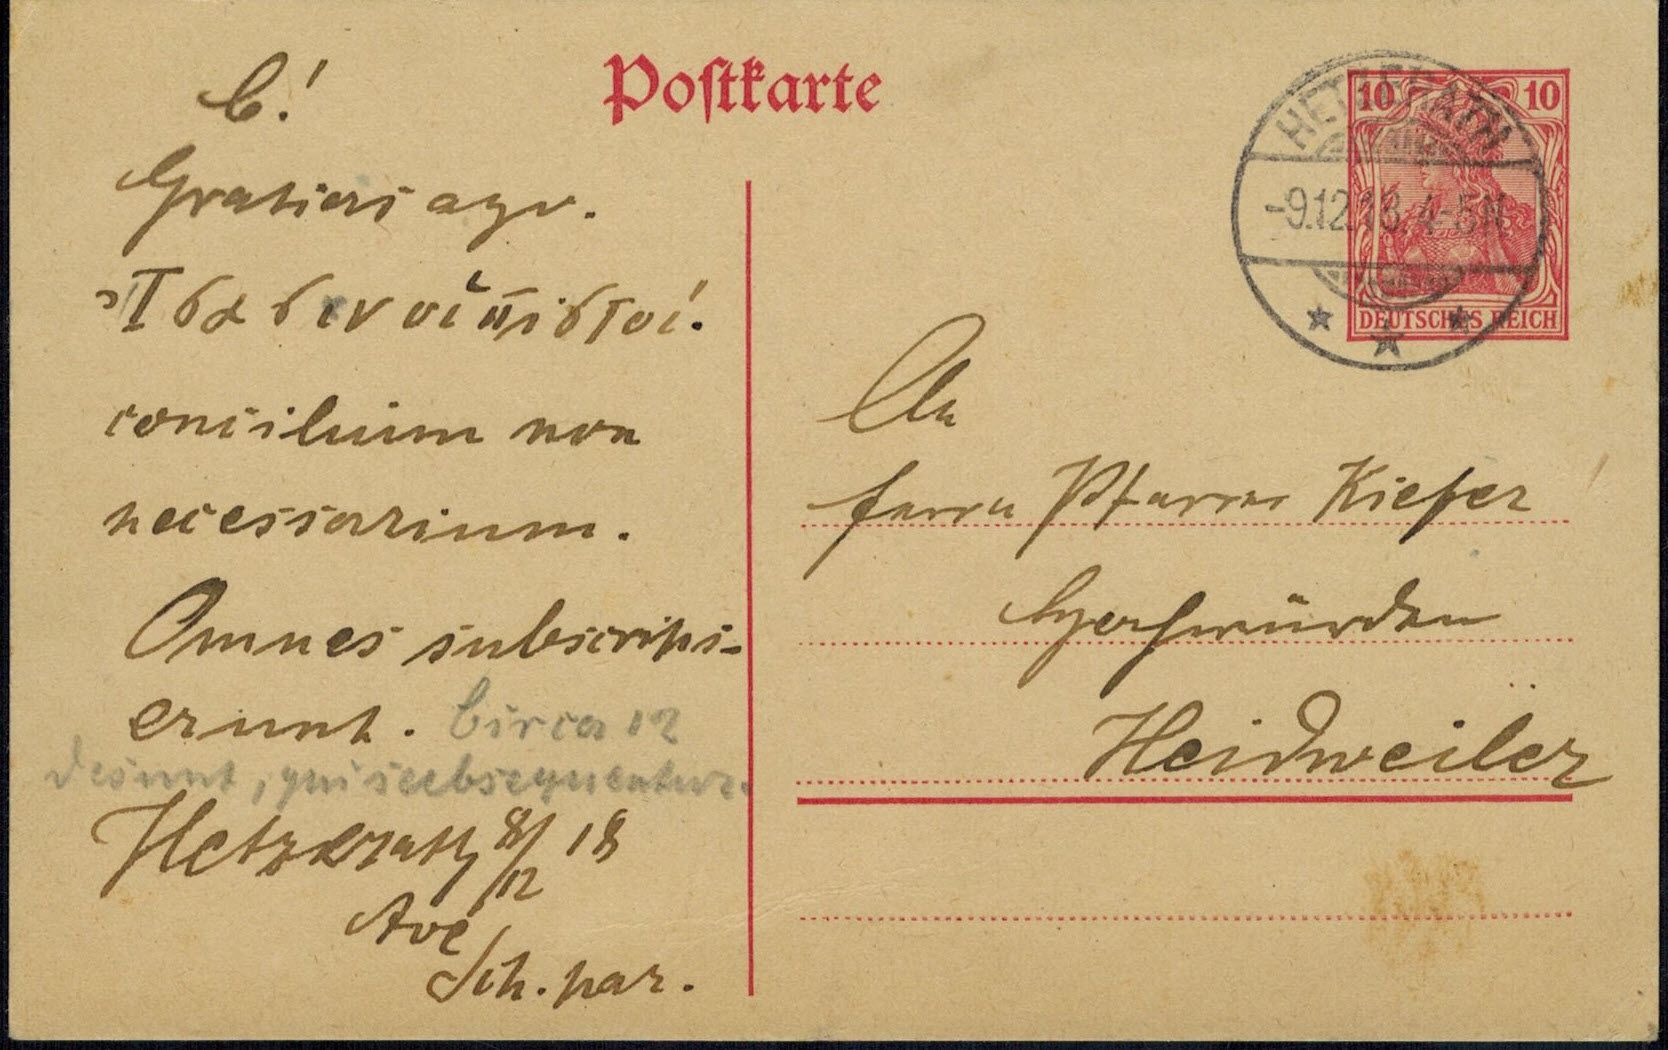 Postkarte
C!
Gratias ago.
Ἴσασιν οἱ πιστοί.
consilium non
necessarium.
Omnes subscrips-
erunt. Circa 12
desunt, qui subsequentur.
Hetzerath 8/12 18
Ave
Sch. par.
10 10
DEUTSCHES REICH
HETZERATH
-9.12.18. 4-5N
An
Herrn Pfarrer Kiefer
Hochwürden
Heidweiler